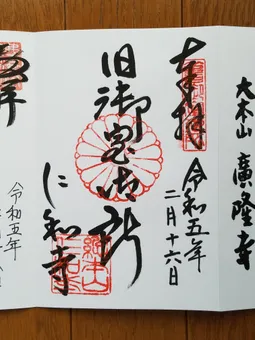 大本山 廣隆寺
奉拝
令和五年
二月十六日
旧御室御所
仁和寺
奉拝
令和五年